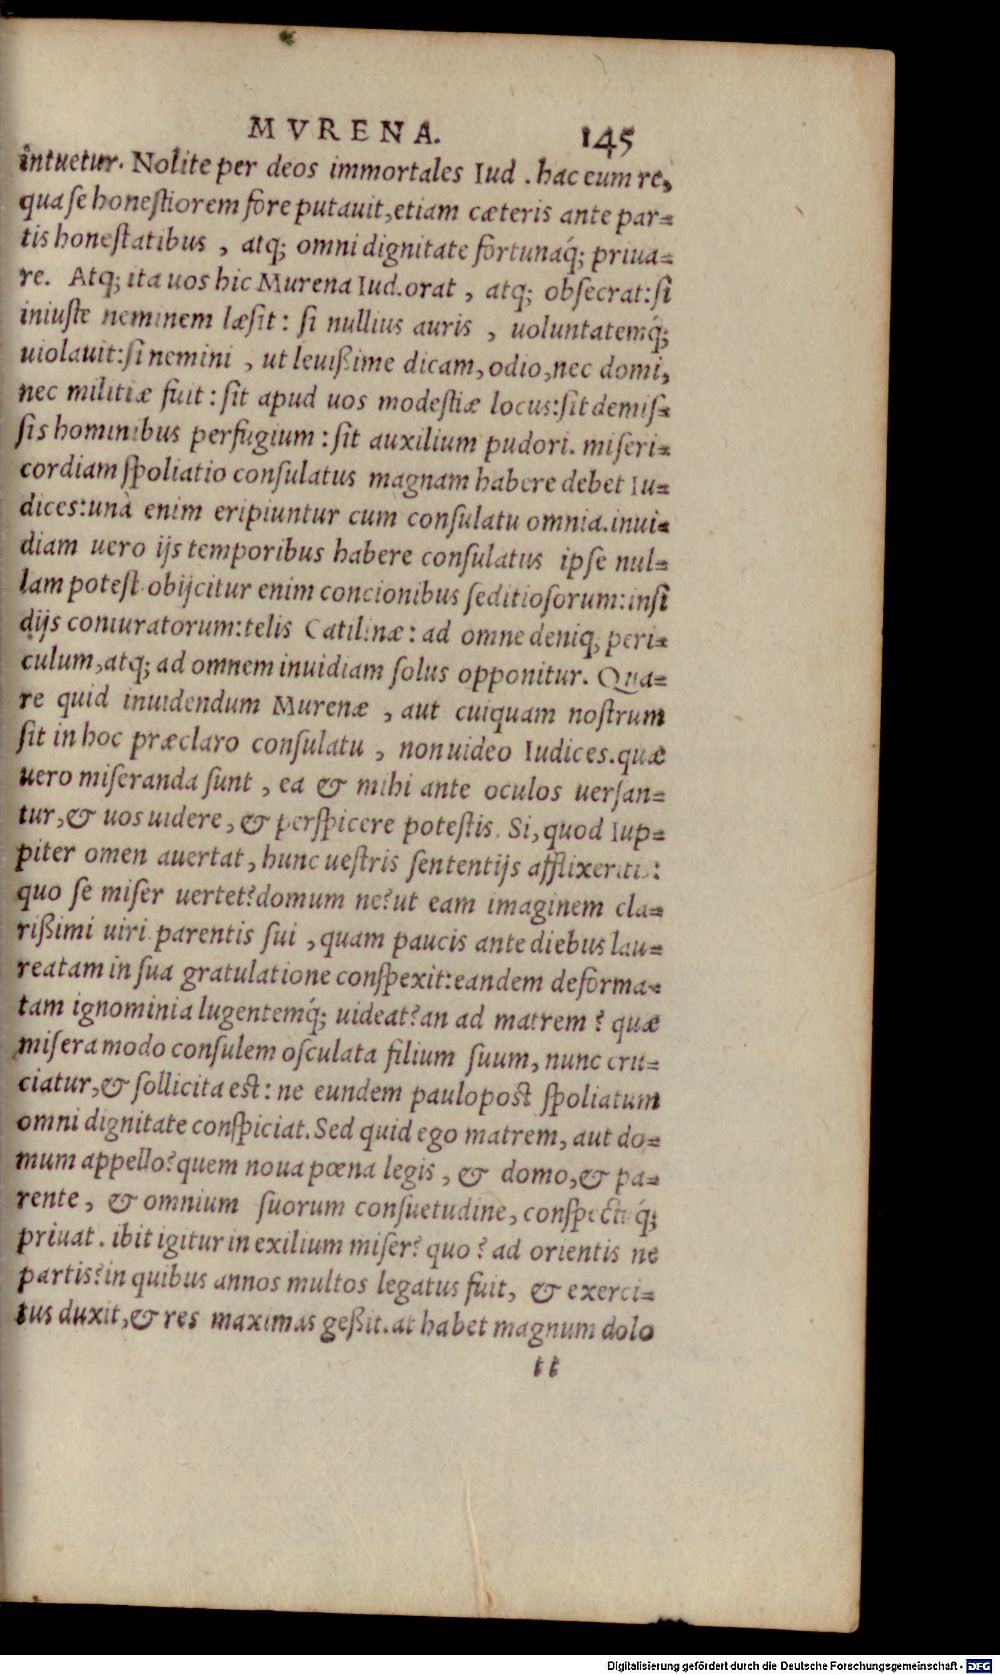 MVRENA. 145
intuetur. Nolite per deos immortales Iud . hac eum re,
qua se honestiorem fore putauit, etiam cæteris ante par=
tis honestatibus , atq; omni dignitate fortunaq́; priua=
re. Atq; ita uos hic Murena Iud. orat , atq; obsecrat: si
iniuste neminem læsit : si nullius auris , uoluntatemq́;
uiolauit: si nemini , ut leuißime dicam, odio, nec domi,
nec militiæ fuit : sit apud uos modestiæ locus: sit demis=
sis hominibus perfugium : sit auxilium pudori. miseri=
cordiam spoliatio consulatus magnam habere debet Iu=
dices: unà enim eripiuntur cum consulatu omnia. inui=
diam uero ijs temporibus habere consulatus ipse nul=
lam potest obijcitur enim concionibus seditiosorum: insi
dijs coniuratorum: telis Catilinæ : ad omne deniq; peri=
culum, atq; ad omnem inuidiam solus opponitur. Qua=
re quid inuidendum Murenæ , aut cuiquam nostrum
sit in hoc præclaro consulatu , non uideo Iudices. quæ
uero miseranda sunt , ea & mihi ante oculos uersan=
tur, & uos uidere, & perspicere potestis. Si, quod Iup=
piter omen auertat, hunc uestris sententijs afflixeritis:
quo se miser uertet? domum ne? ut eam imaginem cla=
rißimi uiri parentis sui , quam paucis ante diebus lau=
reatam in sua gratulatione conspexit: eandem deforma=
tam ignominia lugentemq́; uideat? an ad matrem ? quæ
misera modo consulem osculata filium suum, nunc cru=
ciatur, & sollicita est : ne eundem paulopost spoliatum
omni dignitate conspiciat. Sed quid ego matrem, aut do=
mum appello? quem noua pœna legis , & domo, & pa=
rente, & omnium suorum consuetudine, conspectuq́;
priuat. ibit igitur in exilium miser? quo ? ad orientis ne
partis? in quibus annos multos legatus fuit, & exerci=
tus duxit, & res maximas geßit. at habet magnum dolo
tt
Digitalisierung gefördert durch die Deutsche Forschungsgemeinschaft - DFG